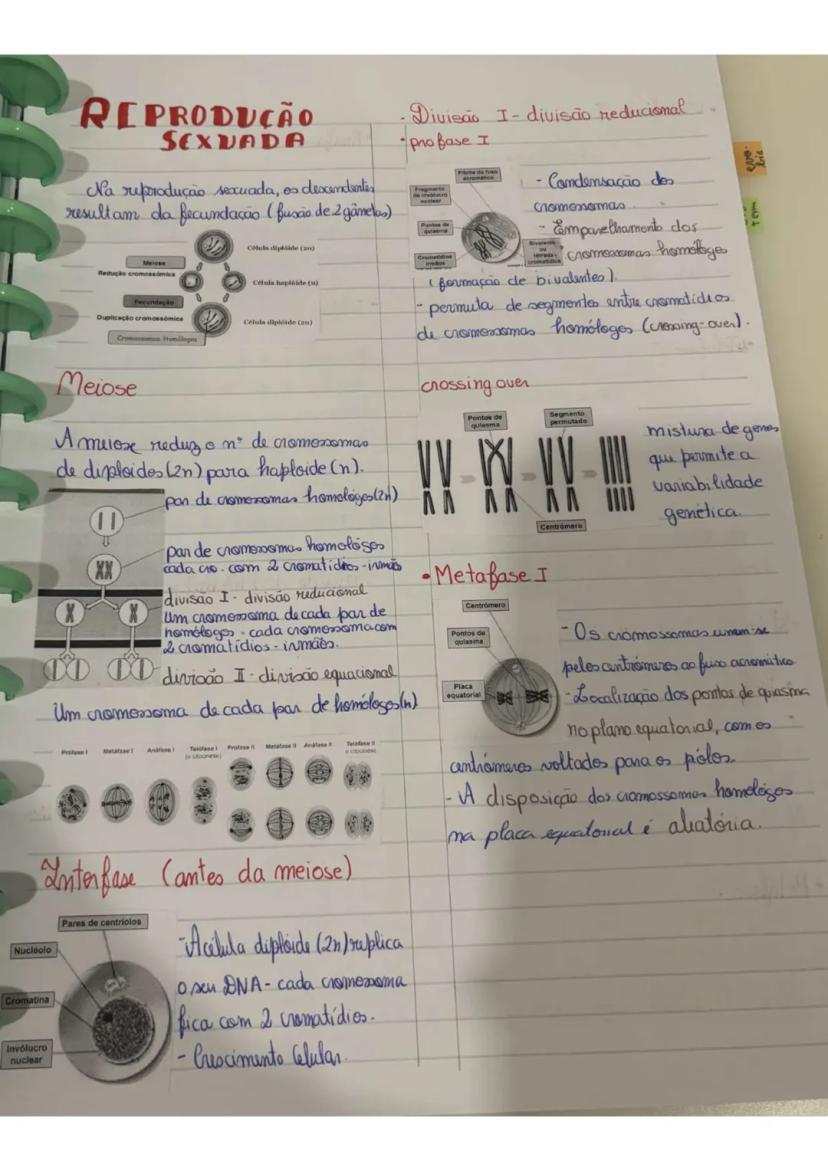 REPRODUÇÃO
SEXUADA
Na reprodução sexuada, os descendentes
resultam da fecundação (fusão de 2 gâmetas)
Célula diplóide (2n)
Meiose
Redução cromossómica
Célula haplóide (n)
Fecundação
Duplicação cromossómica
Célula diplóide (2n)
Cromossomas Homólogos
Meiose
A meiose reduz o nº de cromossomas
de diploides (2n) para haploide (n).
par de cromossomas homológos (2n)
par de cromossomas homológos
cada cro. com 2 cromatídios-irmãos
divisão I - divisão reducional
Um cromossoma de cada par de
homólogos - cada cromossoma com
2 cromatídios - irmãos.
divisão II - divisão equacional
Um cromossoma de cada par de homólogos (n)
Profase I Metáfase I Anáfase I Telófase I Profase II Metáfase II Anáfase II Telófase II
(e citocinese) e citocinese
Interfase (antes da meiose)
Pares de centríolos
Nucléolo
Cromatina
Invólucro
nuclear
- A célula diplóide (2n) replica
o seu DNA - cada cromossoma
fica com 2 cromatídios.
- Crescimento Celular.
· Divisão I - divisão reducional
• profase I
Fibrila do fuso
acromático
Fragmento
de invólucro
nuclear
Pontos de
quiasma
Cromatídios
irmãos
Bivalente
ou
tétrada
cromatídica
- Condensação dos
cromossomas.
- Emparelhamento dos
cromossomas homólogos
(formação de bivalentes).
- permuta de segmentos entre cromatídios
de cromossomas homólogos (crossing-over).
crossing over
Pontos de
quiasma
Segmento
permutado
Centrómero
mistura de genes
que permite a
variabilidade
genética.
• Metafase I
Centrómero
Pontos de
quiasma
Placa
equatorial
- Os cromossomas unem-se
pelos centrómeros ao fuso acromático
- Localização dos pontos de quiasma
no plano equatorial, com os
centrómeros voltados para os pólos.
- A disposição dos cromossomas homólogos
na placa equatorial é aleatória.